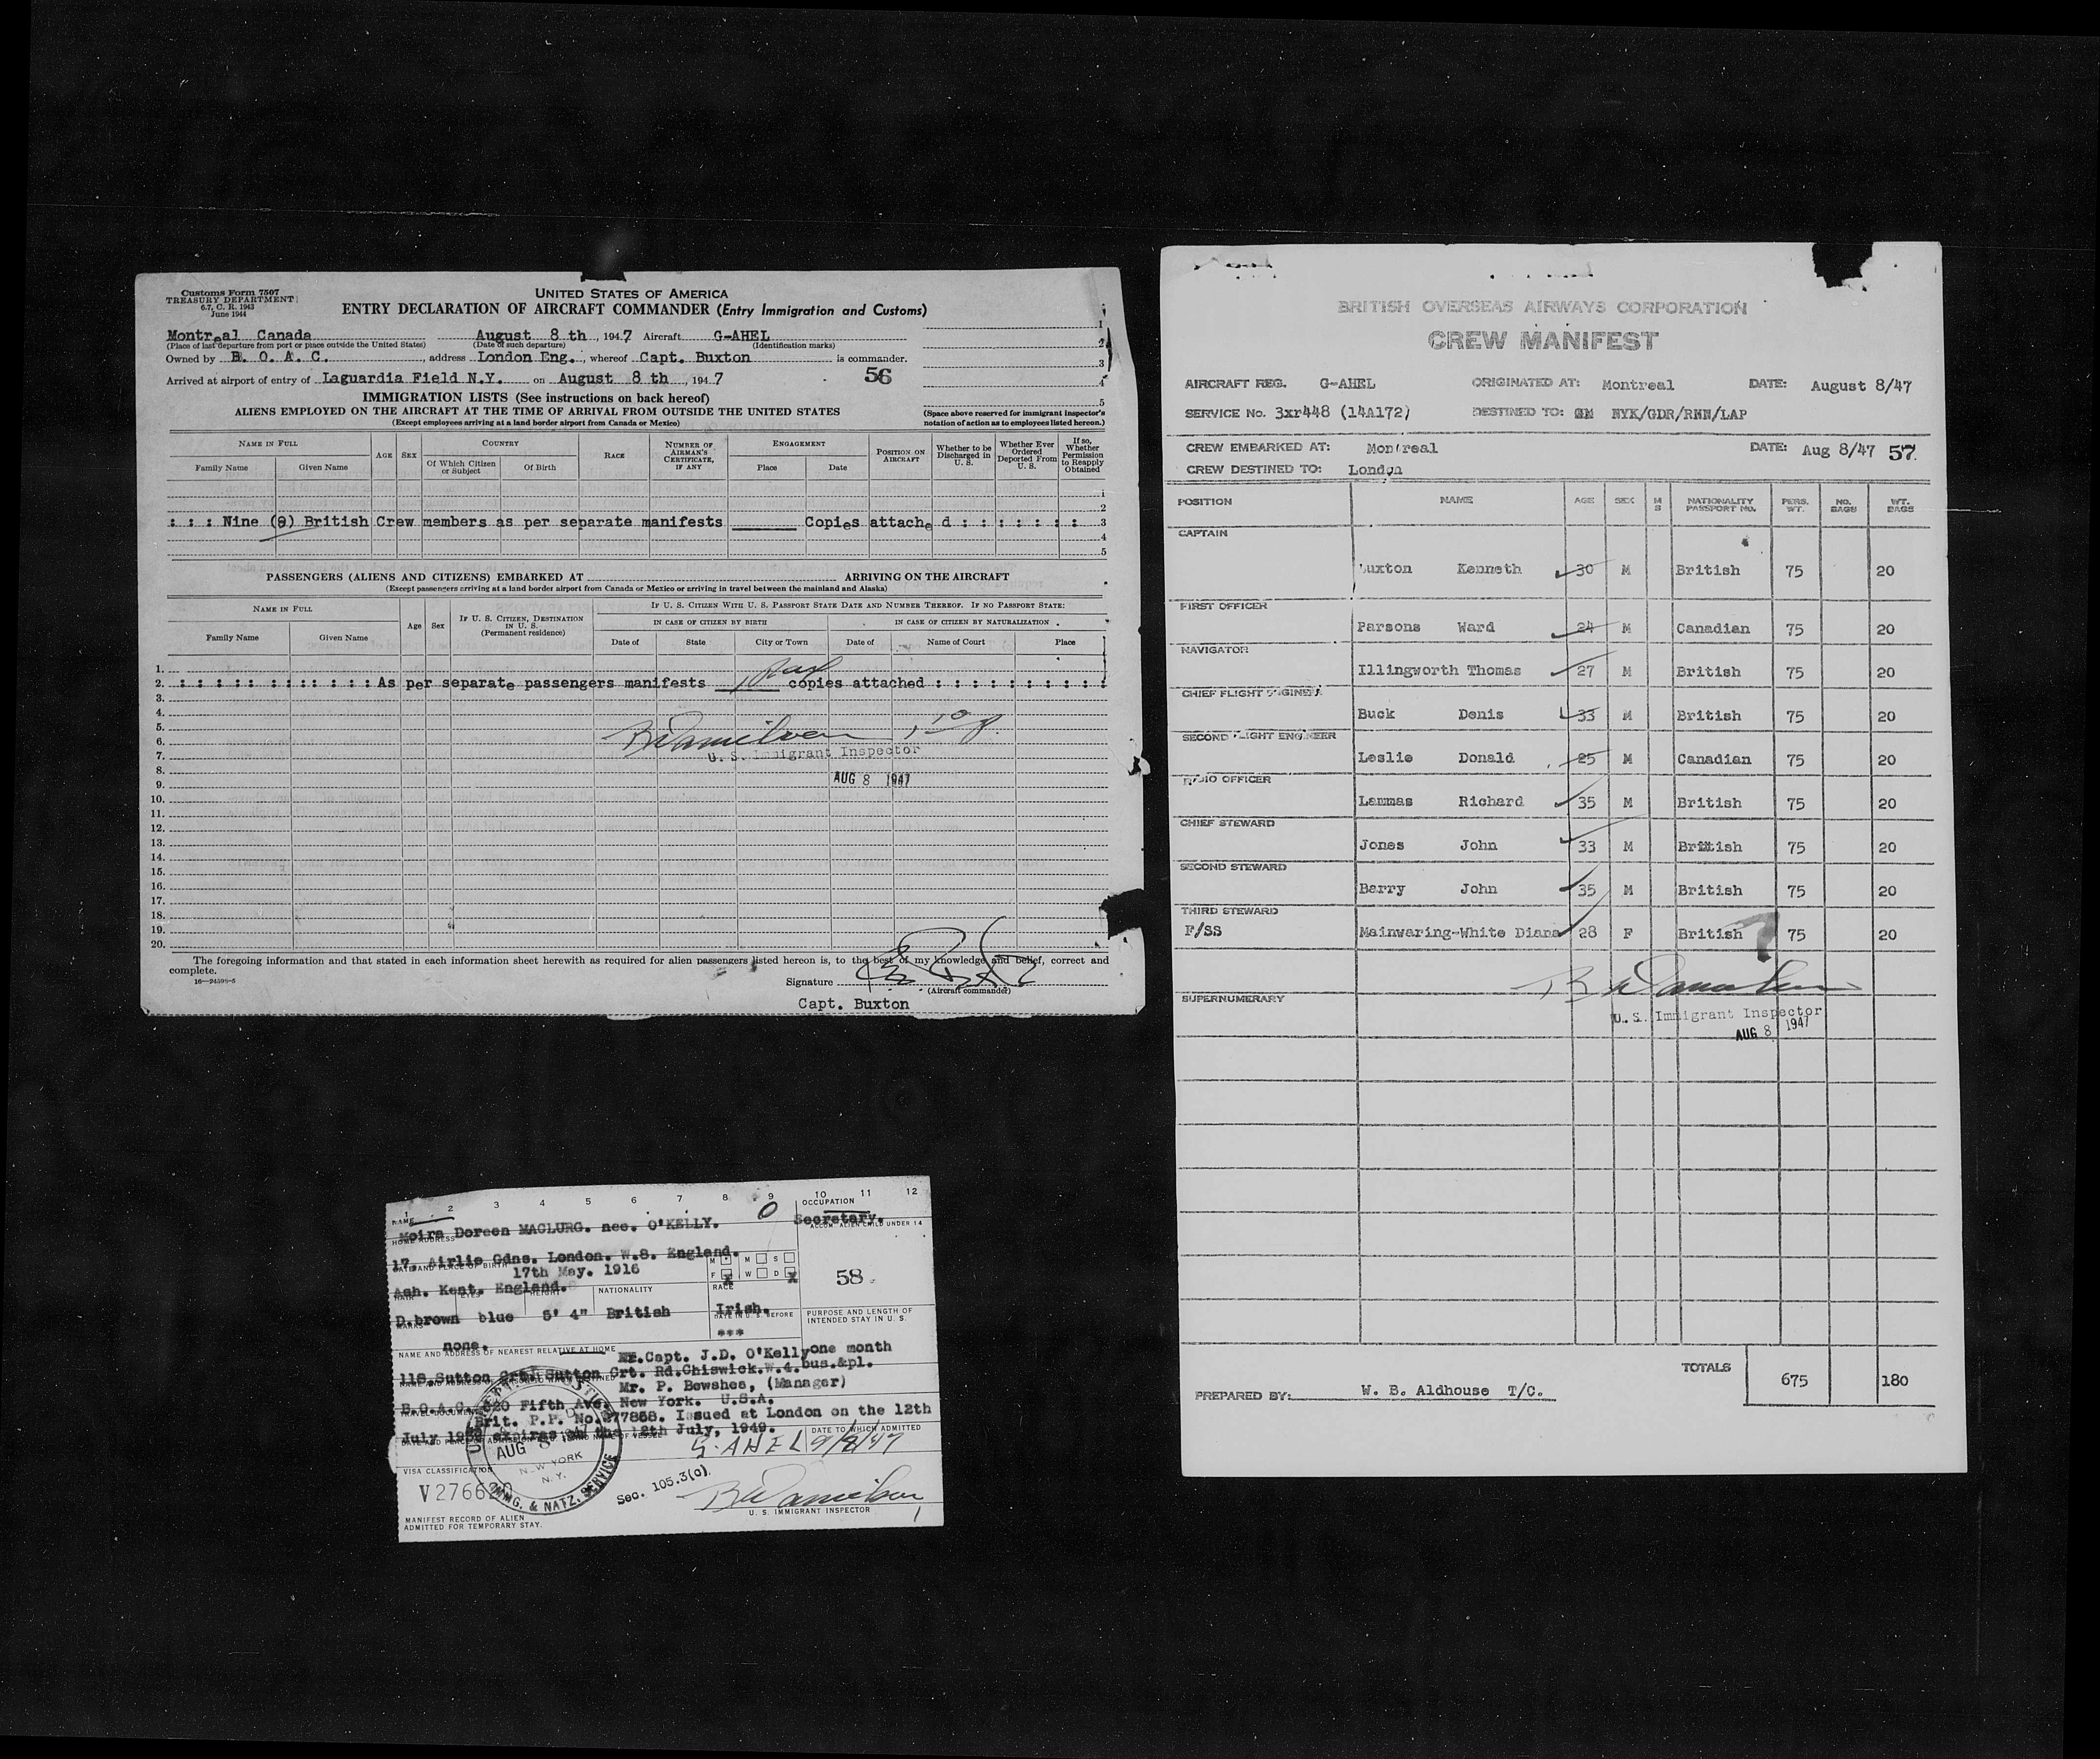 Customs Form 7507
TREASURY DEPARTMENT
6.7, C. R. 1943
June 1944
UNITED STATES OF AMERICA
ENTRY DECLARATION OF AIRCRAFT COMMANDER (Entry Immigration and Customs)
Montreal Canada August 8 th, 1947 Aircraft G-AHEL
(Place of last departure from port or place outside the United States) (Date of such departure) (Identification marks)
Owned by B. O. A. C., address London Eng., whereof Capt. Buxton is commander.
Arrived at airport of entry of Laguardia Field N.Y. on August 8 th, 1947
56
1
2
3
4
5
IMMIGRATION LISTS (See instructions on back hereof)
ALIENS EMPLOYED ON THE AIRCRAFT AT THE TIME OF ARRIVAL FROM OUTSIDE THE UNITED STATES
(Except employees arriving at a land border airport from Canada or Mexico)
(Space above reserved for immigrant inspector's notation of action as to employees listed hereon.)
NAME IN FULL
Family Name Given Name
AGE SEX
COUNTRY
Of Which Citizen or Subject Of Birth
RACE
NUMBER OF AIRMAN'S CERTIFICATE, IF ANY
ENGAGEMENT
Place Date
POSITION ON AIRCRAFT
Whether to be Discharged in U. S.
Whether Ever Ordered Deported From U. S.
If so, Whether Permission to Reapply Obtained
1
2
: : : Nine (9) British Crew members as per separate manifests Copies attache d : : : : : : : 3
4
5
PASSENGERS (ALIENS AND CITIZENS) EMBARKED AT ARRIVING ON THE AIRCRAFT
(Except passengers arriving at a land border airport from Canada or Mexico or arriving in travel between the mainland and Alaska)
NAME IN FULL
Family Name Given Name
Age Sex
IF U. S. CITIZEN, DESTINATION IN U. S. (Permanent residence)
IF U. S. CITIZEN WITH U. S. PASSPORT STATE DATE AND NUMBER THEREOF. IF NO PASSPORT STATE:
IN CASE OF CITIZEN BY BIRTH IN CASE OF CITIZEN BY NATURALIZATION
Date of State City or Town Date of Name of Court Place
1.
2. As per separate passengers manifests copies attached
3.
4.
5.
6.
7. U. S. Immigrant Inspector
8. AUG 8 1947
9.
10.
11.
12.
13.
14.
15.
16.
17.
18.
19.
20.
The foregoing information and that stated in each information sheet herewith as required for alien passengers listed hereon is, to the best of my knowledge and belief, correct and
complete.
16—24598-5
Signature
(Aircraft commander)
Capt. Buxton
BRITISH OVERSEAS AIRWAYS CORPORATION
CREW MANIFEST
AIRCRAFT REG. G-AHEL ORIGINATED AT: Montreal DATE: August 8/47
SERVICE No. 3xr448 (14A172) DESTINED TO: NYK/GDR/RNN/LAP
CREW EMBARKED AT: Montreal DATE: Aug 8/47 57
CREW DESTINED TO: London
POSITION NAME AGE SEX M S NATIONALITY PASSPORT NO. PERS. WT. NO. BAGS WT. BAGS
CAPTAIN
uxton Kenneth 30 M British 75 20
FIRST OFFICER
Parsons Ward 24 M Canadian 75 20
NAVIGATOR
Illingworth Thomas 27 M British 75 20
CHIEF FLIGHT ENGINEER
Buck Denis 33 M British 75 20
SECOND FLIGHT ENGINEER
Leslie Donald 25 M Canadian 75 20
RADIO OFFICER
Lammas Richard 35 M British 75 20
CHIEF STEWARD
Jones John 33 M British 75 20
SECOND STEWARD
Barry John 35 M British 75 20
THIRD STEWARD
F/SS Mainwaring-White Diana 28 F British 75 20
SUPERNUMERARY
U. S. Immigrant Inspector
AUG 8 1947
TOTALS 675 180
PREPARED BY: W. B. Aldhouse T/C.
1 2 3 4 5 6 7 8 9 10 11 12
NAME OCCUPATION
Moira Doreen MACLURG. nee. O'KELLY. Secretary.
HOME ADDRESS ACCOM. ALIEN CHILD UNDER 14
17, Airlie Gdns. London. W.8. England.
DATE AND PLACE OF BIRTH
17th May. 1916
M M S
F X W D X
58
Ash. Kent. England.
HAIR EYES HEIGHT NATIONALITY RACE
D.brown blue 5' 4" British Irish.
MARKS DATE IN U. S. BEFORE
PURPOSE AND LENGTH OF INTENDED STAY IN U. S.
none. ***
NAME AND ADDRESS OF NEAREST RELATIVE AT HOME
Capt. J.D. O'Kelly one month
118 Sutton Crt. Sutton Crt. Rd. Chiswick. W.4. bus.&pl.
Mr. P. Bewshea, (Manager)
B.O.A.C. 620 Fifth Ave. New York. U.S.A.
TRAVEL DOCUMENT
Brit. P.P. No. 77858. Issued at London on the 12th
July expires on the 12th July, 1949.
DATE TO WHICH ADMITTED
G-AHEL 9/8/47
AUG 8
NEW YORK
N. Y.
IMMG. & NATZ. SERVICE
VISA CLASSIFICATION
Sec. 105.3(c).
U. S. IMMIGRANT INSPECTOR
MANIFEST RECORD OF ALIEN
ADMITTED FOR TEMPORARY STAY.
1